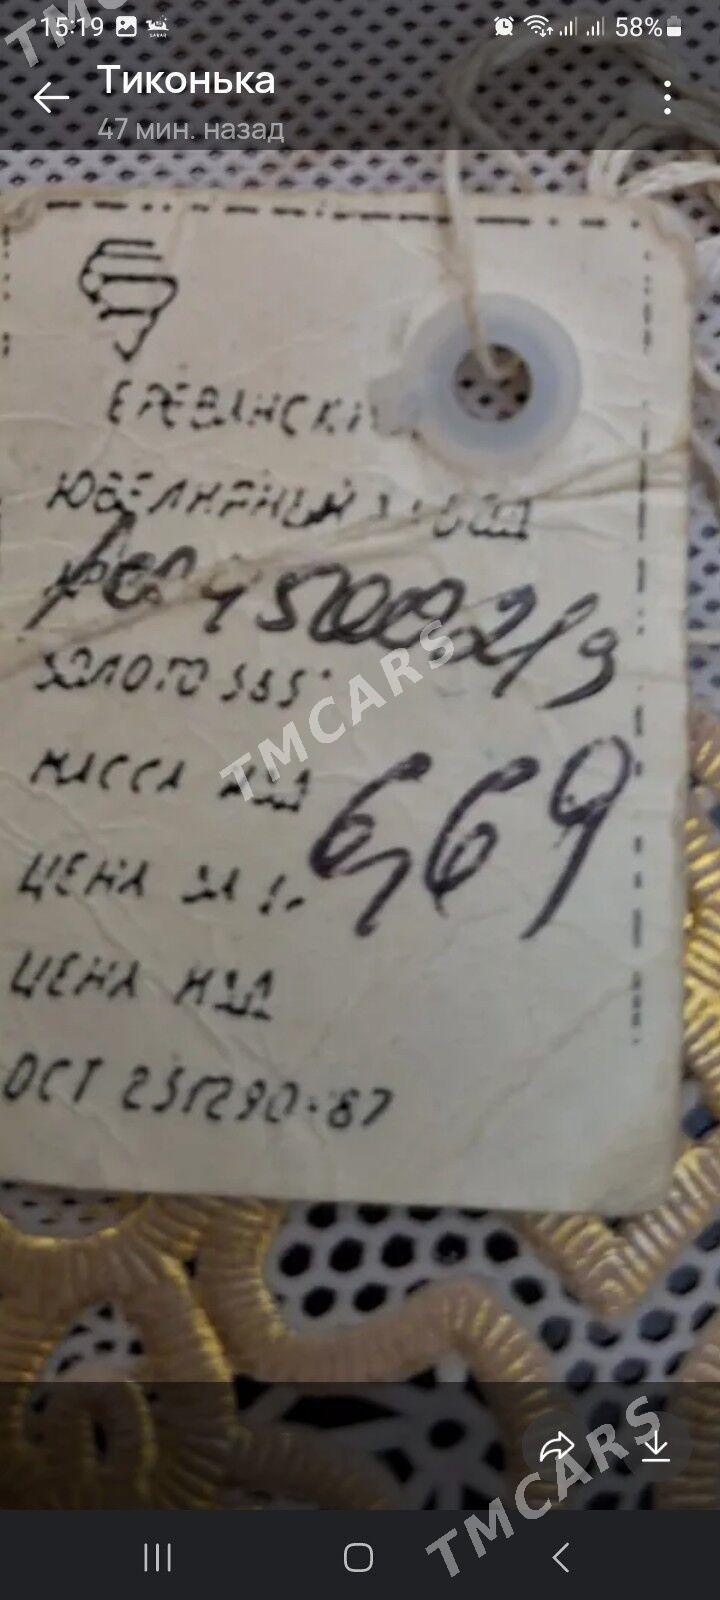 15:19
58%
Тиконька
47 мин. назад
ЕРЕВАНСКИ
ЮВЕЛИРНЫЙ
ЗОЛОТО 585°
МАССА ИЗД
6,69
ЦЕНА ЗА 1г.
ЦЕНА ИЗД
ОСТ 251290-87
TMCARS
TMCARS